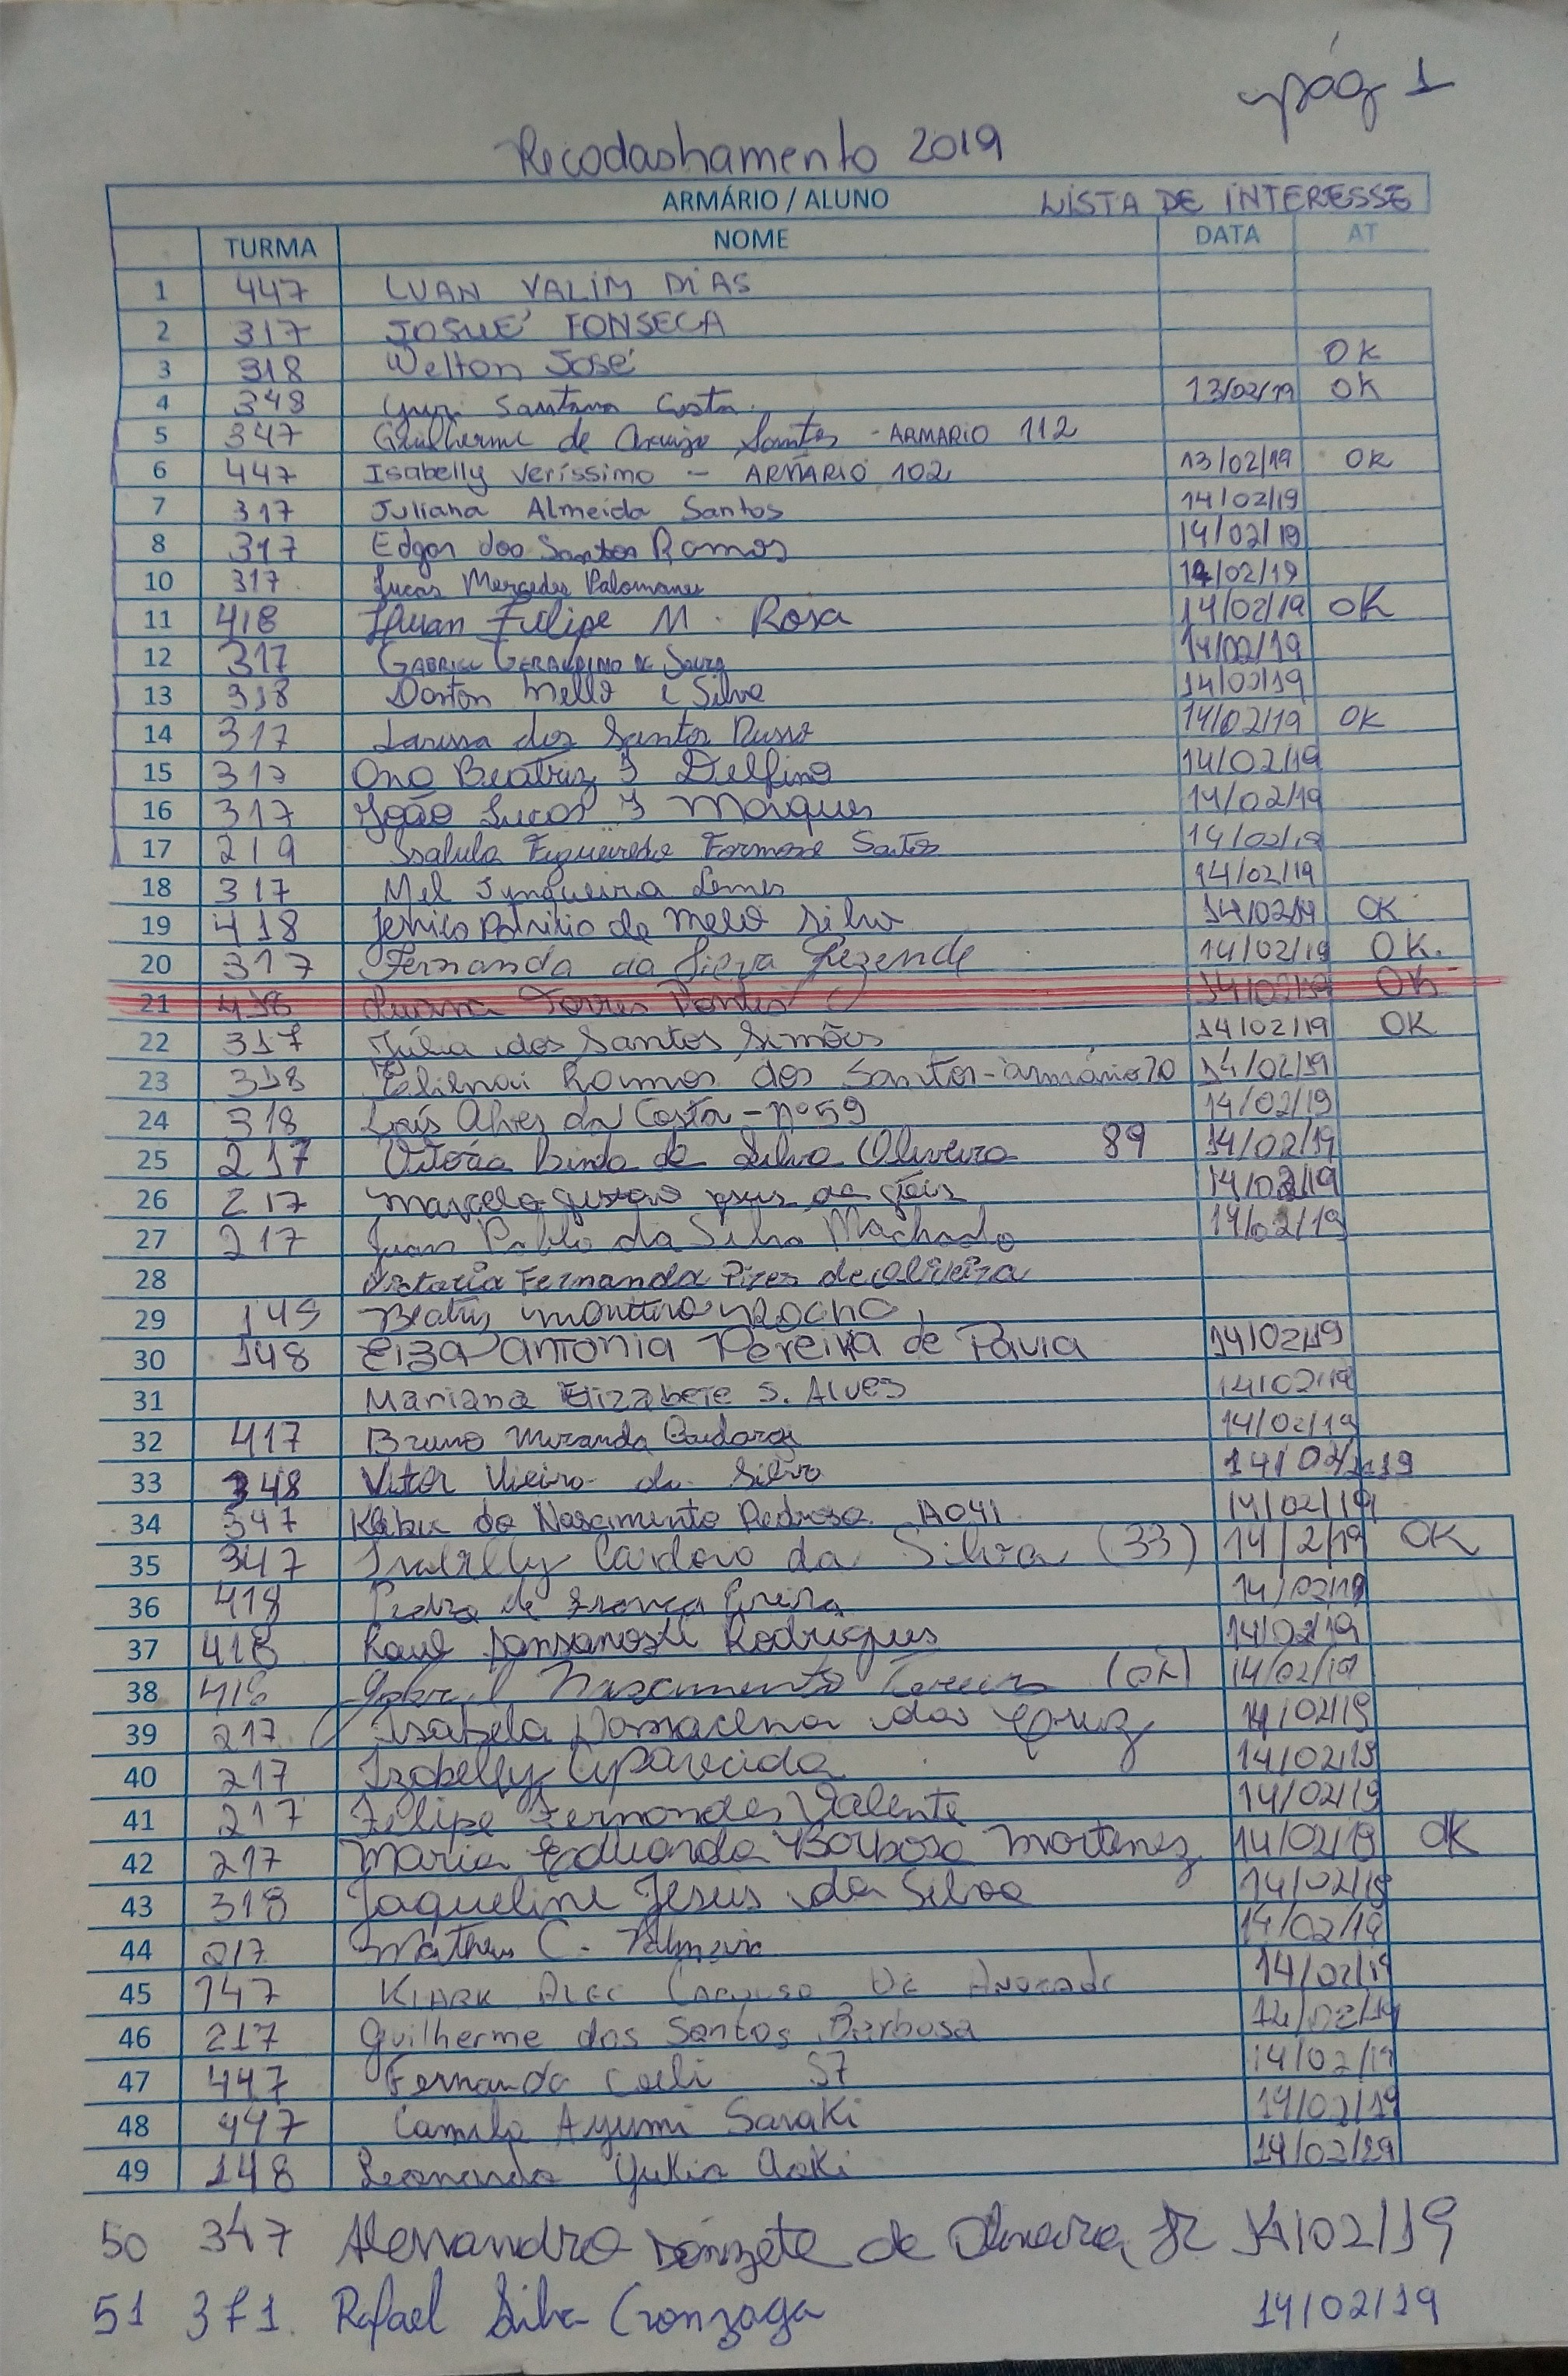 pág 1
Recodashamento 2019
ARMÁRIO / ALUNO LISTA DE INTERESSE
TURMA NOME DATA AT
1 447 LUAN VALIM DIAS
2 317 JOSUÉ FONSECA
3 318 Welton José OK
4 348 Yuri Santana Costa. 13/02/19 OK
5 347 Guilherme de Araujo Santos - ARMARIO 112
6 447 Isabelly Veríssimo - ARMÁRIO 102 13/02/19 OK
7 317 Juliana Almeida Santos 14/02/19
8 317 Edgar dos Santos Ramos 14/02/19
10 317 Lucas Mercedes Palomares 14/02/19
11 418 Felipe M. Rosa 14/02/19 OK
12 317 GABRIEL GERALDINO DE Souza 14/02/19
13 318 Mello e Silva 14/02/19
14 317 Larissa dos Santos Russo 14/02/19 OK
15 317 Ana Beatriz J Delfino 14/02/19
16 317 João Lucas J Marques 14/02/19
17 219 Figueiredo Formose Santos 14/02/19
18 317 Mel Junqueira Lemes 14/02/19
19 418 de Melo Silva 14/02/19 OK
20 317 Fernanda da Silva Rezende 14/02/19 OK.
21 418 Luana Torres Pontes 14/02/19 OK
22 317 Júlia dos Santos Simões 14/02/19 OK
23 318 Ramos dos Santos - armário 70 14/02/19
24 318 Laís Alves da Costa - nº 59 14/02/19
25 217 da Silva Oliveira 89 14/02/19
26 217 Marcelo 14/02/19
27 217 Juan Pablo da Silva Machado 14/02/19
28 Victoria Fernanda Pires de Oliveira
29 149 Beatriz Monteiro Rocha
30 148 Elza Antonia Pereira de Pavia 14/02/19
31 Mariana Elizabete S. Alves 14/02/19
32 417 Bruno Miranda 14/02/19
33 348 Vitor Vieira da Silva 14/02/19
34 347 do Nascimento Pedrosa A041 14/02/19
35 347 Cardoso da Silva (33) 14/2/19 OK
36 418 Pedro de França Pereira 14/02/19
37 418 Rodrigues 14/02/19
38 418 Gabriel Nascimento (OK) 14/02/19
39 217 Isabela Damacena das Cruz 14/02/19
40 217 Izabelly Aparecida 14/02/19
41 217 Felipe Fernandes Valente 14/02/19
42 217 Maria Eduarda Barbosa Martinez 14/02/19 OK
43 318 Jaqueline Jesus da Silva 14/02/19
44 217 Matheus C. Palmeira 14/02/19
45 147 KLARK De 14/02/19
46 217 Guilherme dos Santos Barbosa 14/02/19
47 447 Fernanda Coeli 57 14/02/19
48 447 Camila Ayumi Saraki 14/02/19
49 148 Leonardo Yukio Aoki 14/02/19
50 347 Alessandro Donizete de Oliveira Jr 14/02/19
51 371. Rafael Silva Gonzaga 14/02/19